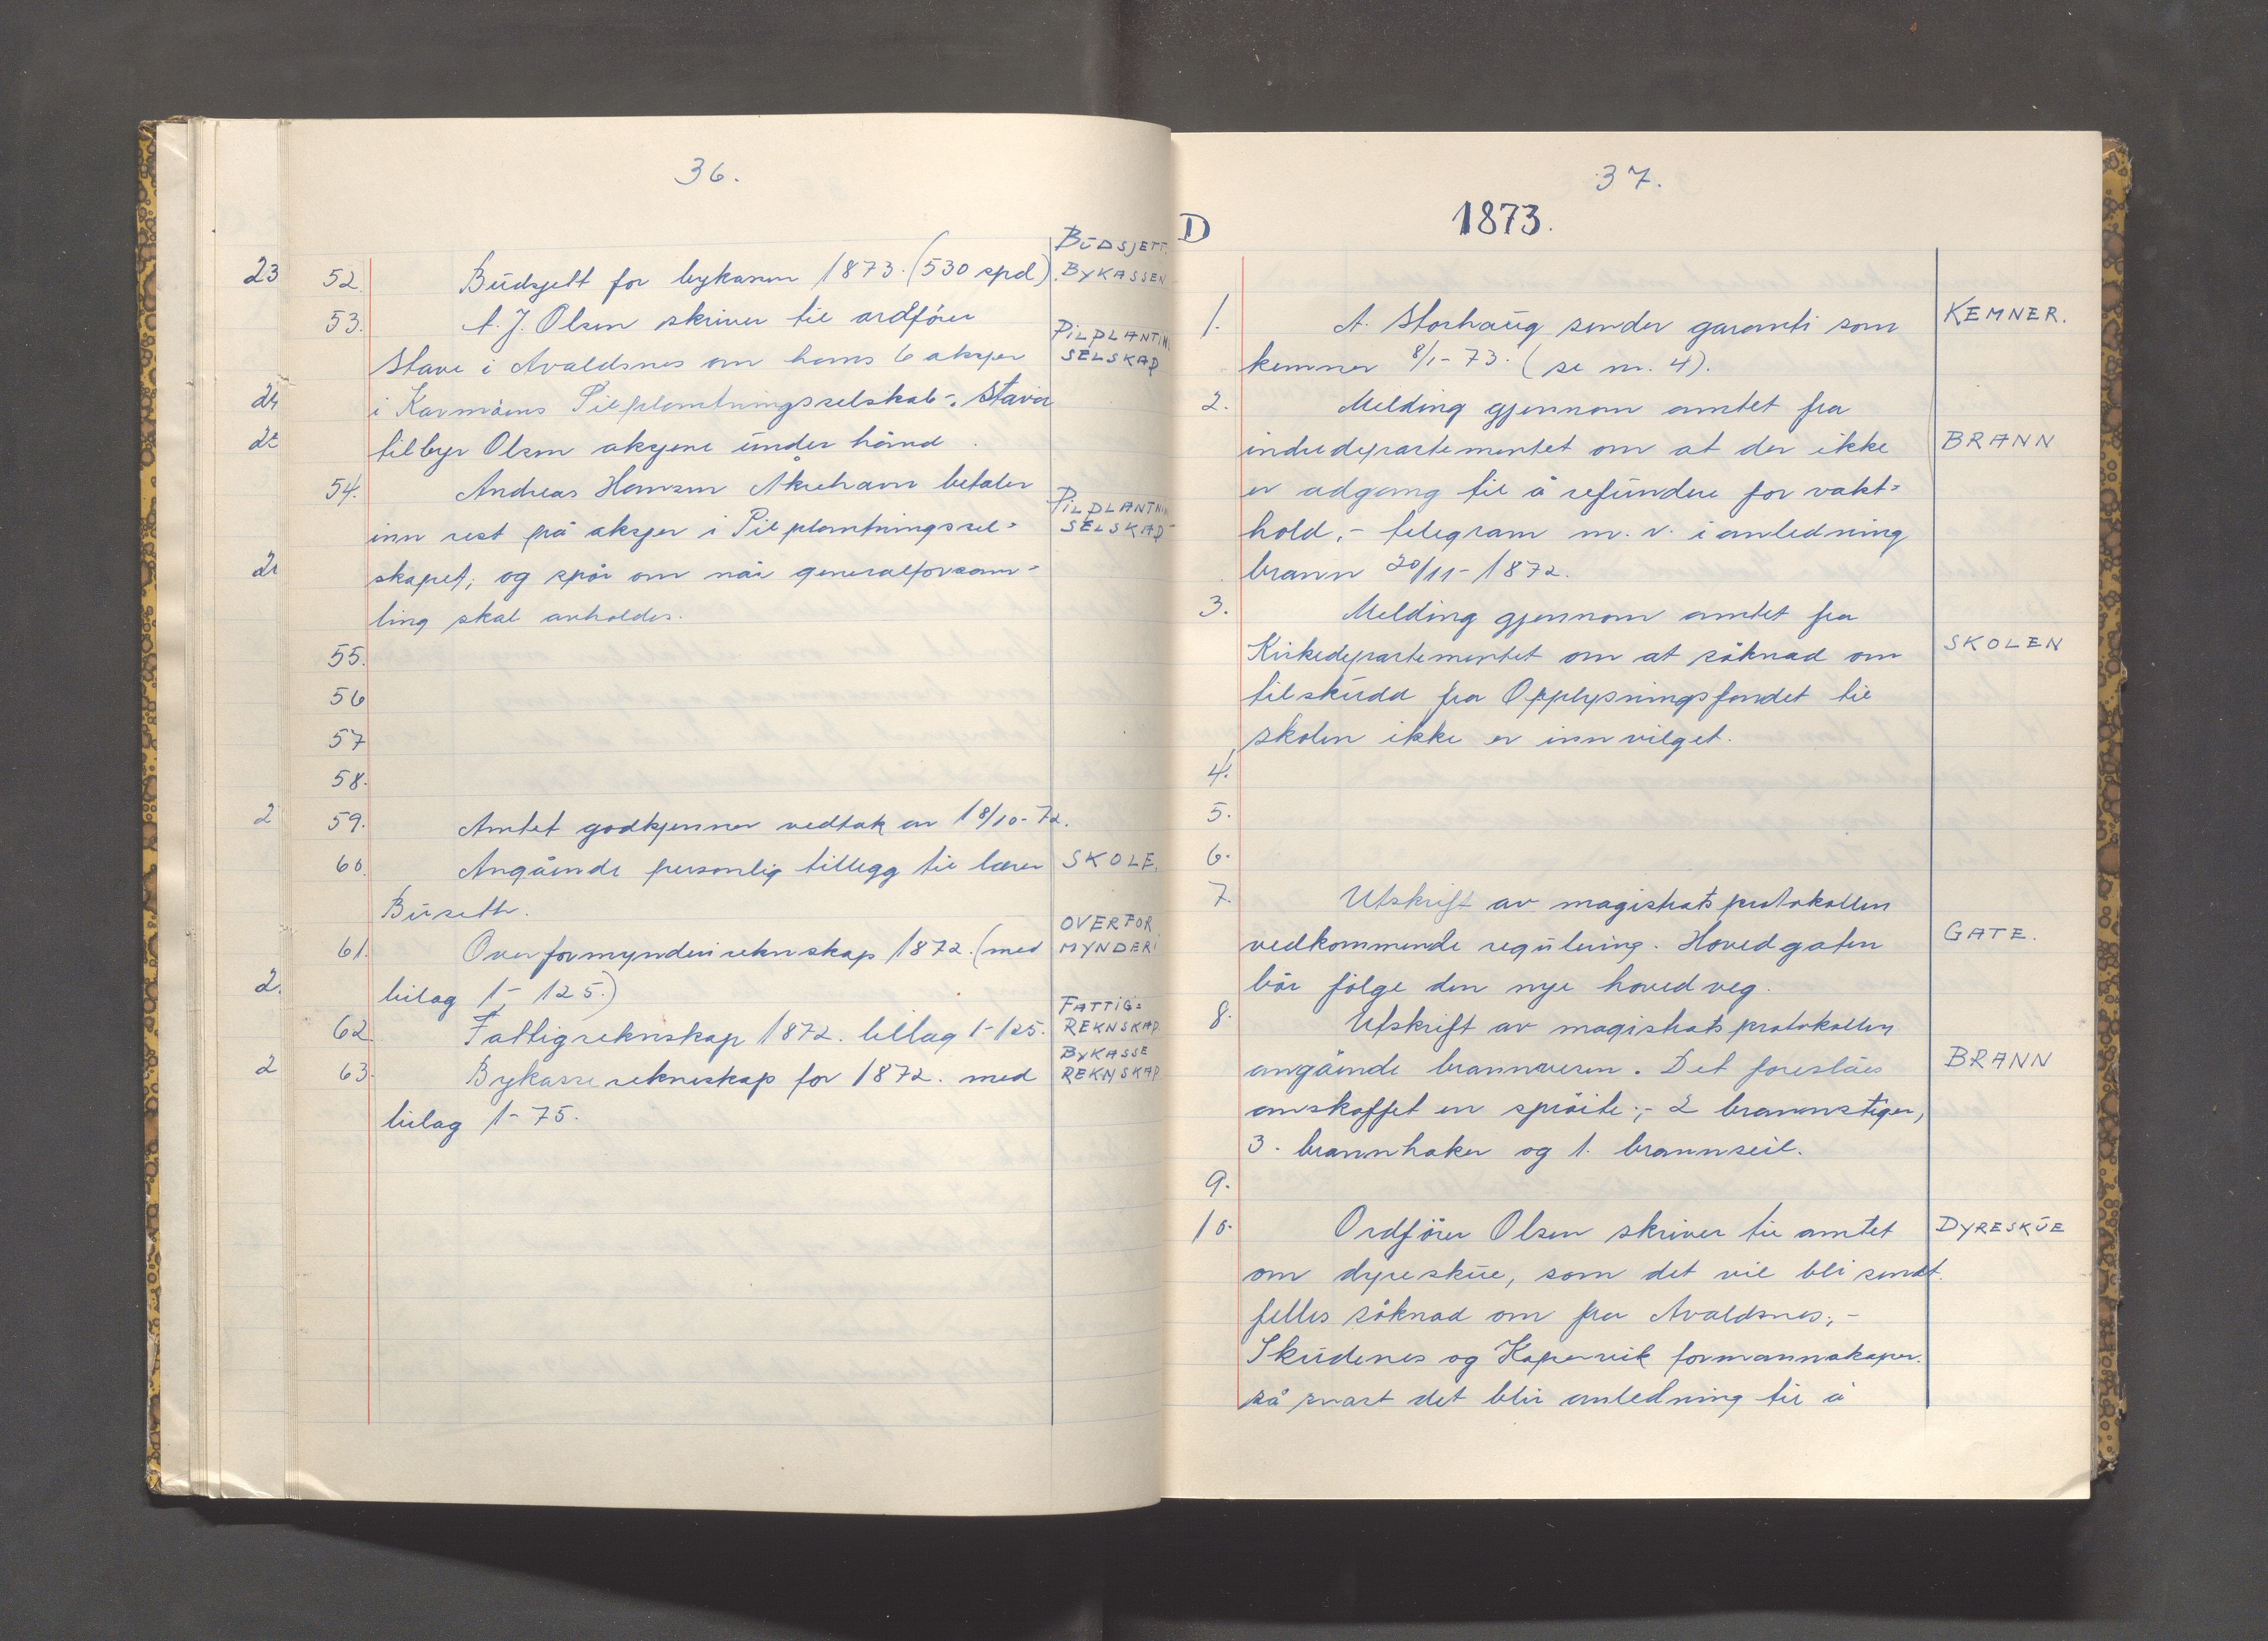 36.
BÜDSJETT.
23 52. Büdsjett for bykassen 1873. (530 spd). BYKASSEN
53. A. J. Olsen skriver til ordförer
PILPLANTIN.
Stave i Avaldsnes om hans 6 aksjer SELSKAP
24 i Karmöens Pilplantningsselskab-. Stave
tilbyr Olsen aksjene ünder hånd.
54. Andreas Hansen Åkrehavn betaler
PILPLANTNIN
inn rest på aksjer i Pilplantningssel= SELSKAP
skapet, og spör om når generalforsam=
ling skal avholdes.
55.
56
57
58.
2 59. Amtet godkjenner vedtak av 18/10-72.
60. Angående personlig tillegg til lærer SKOLE.
Büseth.
OVERFOR
61. Overformynderireknskap 1872. (med MYNDERI
2. bilag 1- 125.)
FATTIG=
62. Fattigreknskap 1872. bilag 1-125. REKNSKAP.
BYKASSE
2 63. Bykassereknskap for 1872. med REKNSKAP
bilag 1- 75.
37.
D 1873.
1. A. Storhaüg sender garanti som KEMNER.
kemner 8/1- 73. (se nr. 4).
2. Melding gjennom amtet fra
indredepartementet om at der ikke BRANN
er adgang til å refündere for vakt=
hold, - telegram m. v. i anledning
brann 20/11- 1872.
3. Melding gjennom amtet fra
Kirkedepartementet om at söknad om SKOLEN
tilsküdd fra Opplysningsfondet til
skolen ikke er innvilget.
4.
5.
6.
7. Utskrift av magistratsprotokollen
vedkommende regülering. Hovedgaten GATE.
bör fölge den nye hovedveg.
8. Utskrift av magistratsprotokollen
angående brannvesen. Det foreslåes BRANN
anskaffet en spröite;- 2 brannstiger,
3. brannhaker og 1. brannseil.
9.
10. Ordförer Olsen skriver til amtet DYRESKÜE
om dyresküe, som det vil bli sendt
felles söknad om fra Avaldsnes;-
Sküdenes og Kopervik formannskaper.
så snart det blir anledning til å